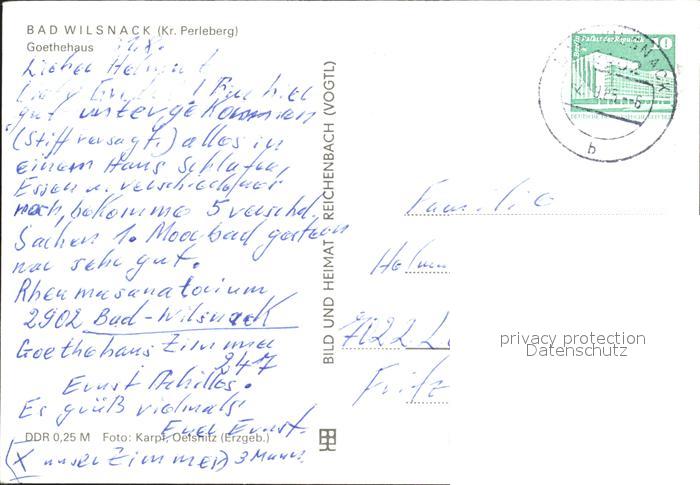 BAD WILSNACK (Kr. Perleberg)
Goethehaus
Lieber Helmut!
gut untergekommen
(Stift versagt.) alles in
einem Haus Schlafen,
Essen u. verschiedener
noch, bekomme 5 verschd.
Sachen 1. Moorbad gestern
war sehr gut.
Rheumasanatorium
2902 Bad-Wilsnack
Goethehaus Zimmer
247
Ernst Achilles.
Es grüßt vielmals
Euer Ernst.
DDR 0,25 M Foto: Karpf, Oelsnitz (Erzgeb.)
(X unser Zimmer) 3 Mann.
BILD UND HEIMAT REICHENBACH (VOGTL)
Berlin, Palast der Republik
10
WILSNACK
b
Familie
7122
Fritz
privacy protection
Datenschutz